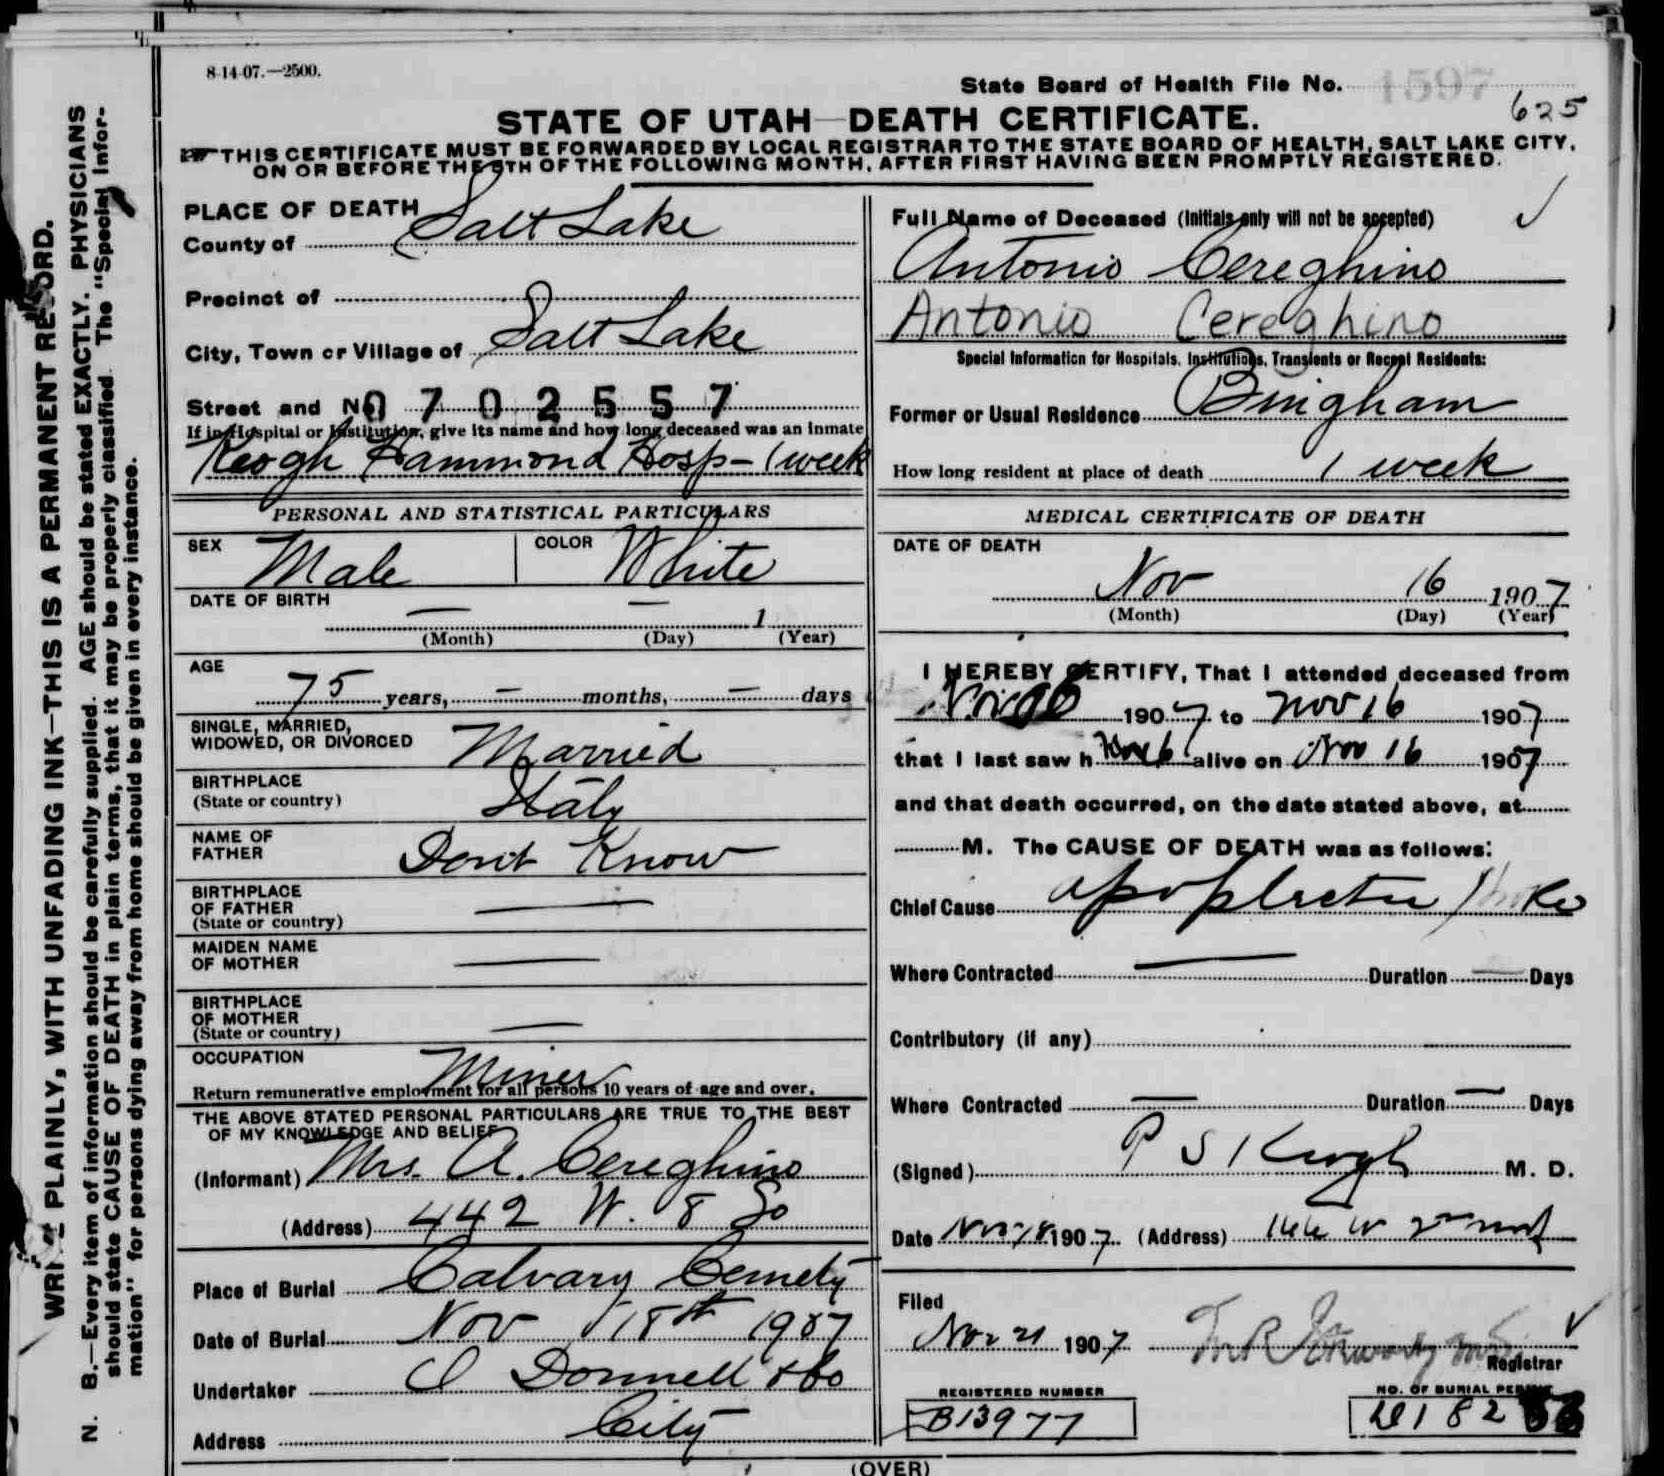 8-14-07.—2500.
State Board of Health File No. 1597
625
STATE OF UTAH—DEATH CERTIFICATE.
THIS CERTIFICATE MUST BE FORWARDED BY LOCAL REGISTRAR TO THE STATE BOARD OF HEALTH, SALT LAKE CITY,
ON OR BEFORE THE 5TH OF THE FOLLOWING MONTH, AFTER FIRST HAVING BEEN PROMPTLY REGISTERED.
WRITE PLAINLY, WITH UNFADING INK—THIS IS A PERMANENT RECORD.
N. B.—Every item of information should be carefully supplied. AGE should be stated EXACTLY. PHYSICIANS
should state CAUSE OF DEATH in plain terms, that it may be properly classified. The "Special Infor-
mation" for persons dying away from home should be given in every instance.
PLACE OF DEATH
County of Salt Lake
Precinct of
City, Town or Village of Salt Lake
Street and No. 0702557
If in Hospital or Institution, give its name and how long deceased was an inmate
Keogh Hammond Hosp - 1 week
PERSONAL AND STATISTICAL PARTICULARS
SEX Male COLOR White
DATE OF BIRTH — — 1
(Month) (Day) (Year)
AGE
75 years, — months, — days
SINGLE, MARRIED,
WIDOWED, OR DIVORCED Married
BIRTHPLACE
(State or country) Italy
NAME OF
FATHER Dont Know
BIRTHPLACE
OF FATHER
(State or country)
MAIDEN NAME
OF MOTHER
BIRTHPLACE
OF MOTHER
(State or country)
OCCUPATION Miner
Return remunerative employment for all persons 10 years of age and over.
THE ABOVE STATED PERSONAL PARTICULARS ARE TRUE TO THE BEST
OF MY KNOWLEDGE AND BELIEF
(Informant) Mrs. A. Cereghino
(Address) 442 W. 8 So
Place of Burial Calvary Cemety
Date of Burial Nov 18th 1907
Undertaker O Donnell & Co
Address City
Full Name of Deceased (Initials only will not be accepted)
Antonio Cereghino
Antonio Cereghino
Special Information for Hospitals, Institutions, Transients or Recent Residents:
Former or Usual Residence Bingham
How long resident at place of death 1 week
MEDICAL CERTIFICATE OF DEATH
DATE OF DEATH
Nov 16 1907
(Month) (Day) (Year)
I HEREBY CERTIFY, That I attended deceased from
1907 to Nov 16 1907
that I last saw h alive on Nov 16 1907
and that death occurred, on the date stated above, at
M. The CAUSE OF DEATH was as follows:
Chief Cause
Where Contracted — Duration — Days
Contributory (if any)
Where Contracted — Duration — Days
(Signed) P S Keogh M. D.
Date Nov 18 1907 (Address)
Filed
Nov 21 1907
Registrar
REGISTERED NUMBER
B13977
NO. OF BURIAL PERMIT
(OVER)